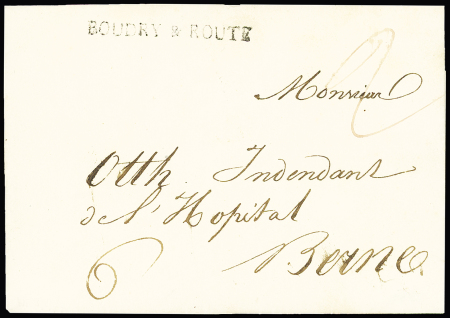 BOUDRY & ROUTE
Monsieur
Otth Indendant
de l'Hopital
Berne
6